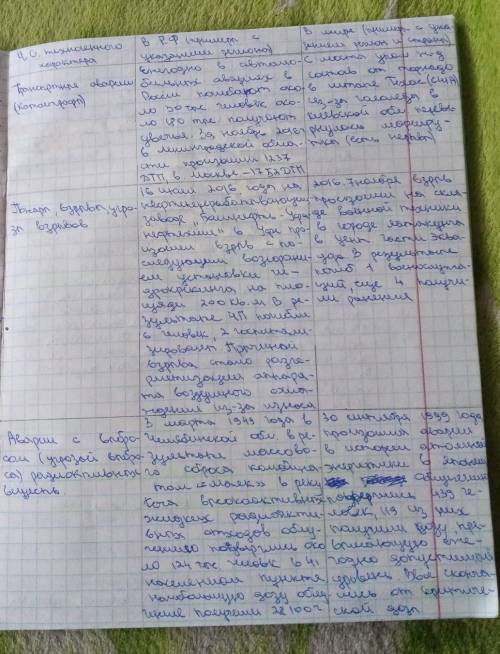 Ч.С. техногенного
характера
В РФ (пример с
указанием региона)
В мире (пример с ука-
занием страны)
Транспортные аварии
(катастрофы)
ежегодно в автомо-
бильных авариях в
России погибают око-
ло 30 тыс человек, око-
ло 180 тыс получают
увечья. За ноябрь 2016г
в Ленинградской обла-
сти произошли 1237
ДТП, в Москве – 1752 ДТП
с моста упал ж/д
состав от торнадо
в штате Техас (США)
из-за гололеда в
Киевской обл. перевер-
нулась маршру-
тка (есть жертвы)
Пожары, взрывы, угро-
за взрывов
16 июля 2016 года на
нефтеперерабатывающем
заводе „Башнефть-Уфа-
нефтехим" в Уфе про-
изошел взрыв с по-
следующим возгорани-
ем установки ги-
дрокрекинга на пло-
щади 200 кв.м. В ре-
зультате ЧП погибли
6 человек, 2 госпитали-
зированы. Причиной
взрыва стала разге-
рметизация аппара-
та воздушного охла-
ждения из-за износа
2016. 7 ноября взрыв
произошел на скла-
де военной техники
в городе Латакунга
в цент. части Эква-
дора. В результате
погиб 1 военнослужа-
щий, еще 4 получи-
ли ранения
Аварии с выбро-
сом (угрозой выбро-
са) радиоактивных
веществ
3 марта 1949 года в
Челябинской обл. в ре-
зультате массово-
го сброса комбина-
том «Маяк» в реку
Теча высокоактивных
жидких радиоакти-
вных отходов облу-
чению подверглись око-
ло 124 тыс человек в 41
населенном пункте
наибольшую дозу облу-
чение получили 28100 ч
30 сентября 1999 года
произошла авария
в истории атомной
энергетики в Японии
облучению
подверглись 439 че-
ловек, 119 из них
получили дозу, пре-
вышающую еже-
годно допустимый
уровень. Двое сконча-
лись от критиче-
ской дозы